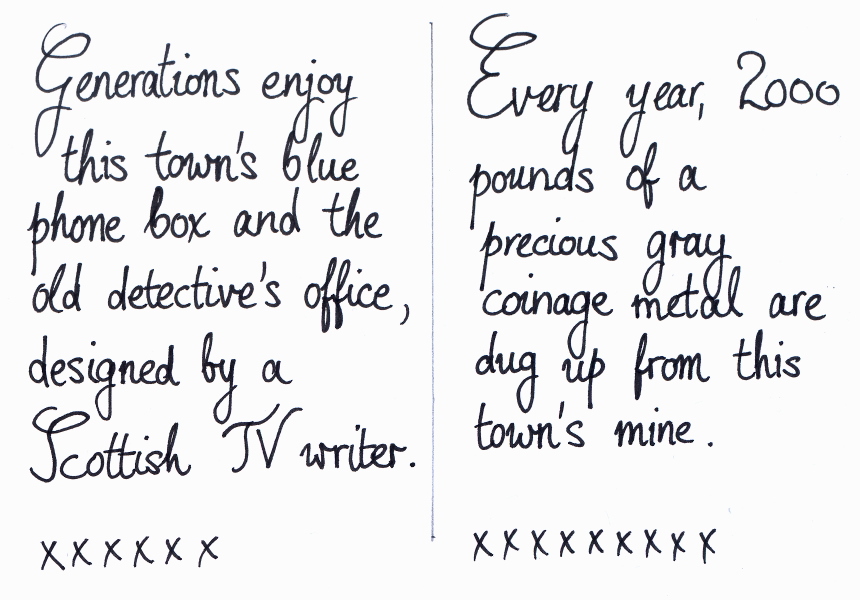 Generations enjoy
this town's blue
phone box and the
old detective's office,
designed by a
Scottish TV writer.
x x x x x x
Every year, 2000
pounds of a
precious gray
coinage metal are
dug up from this
town's mine.
x x x x x x x x x